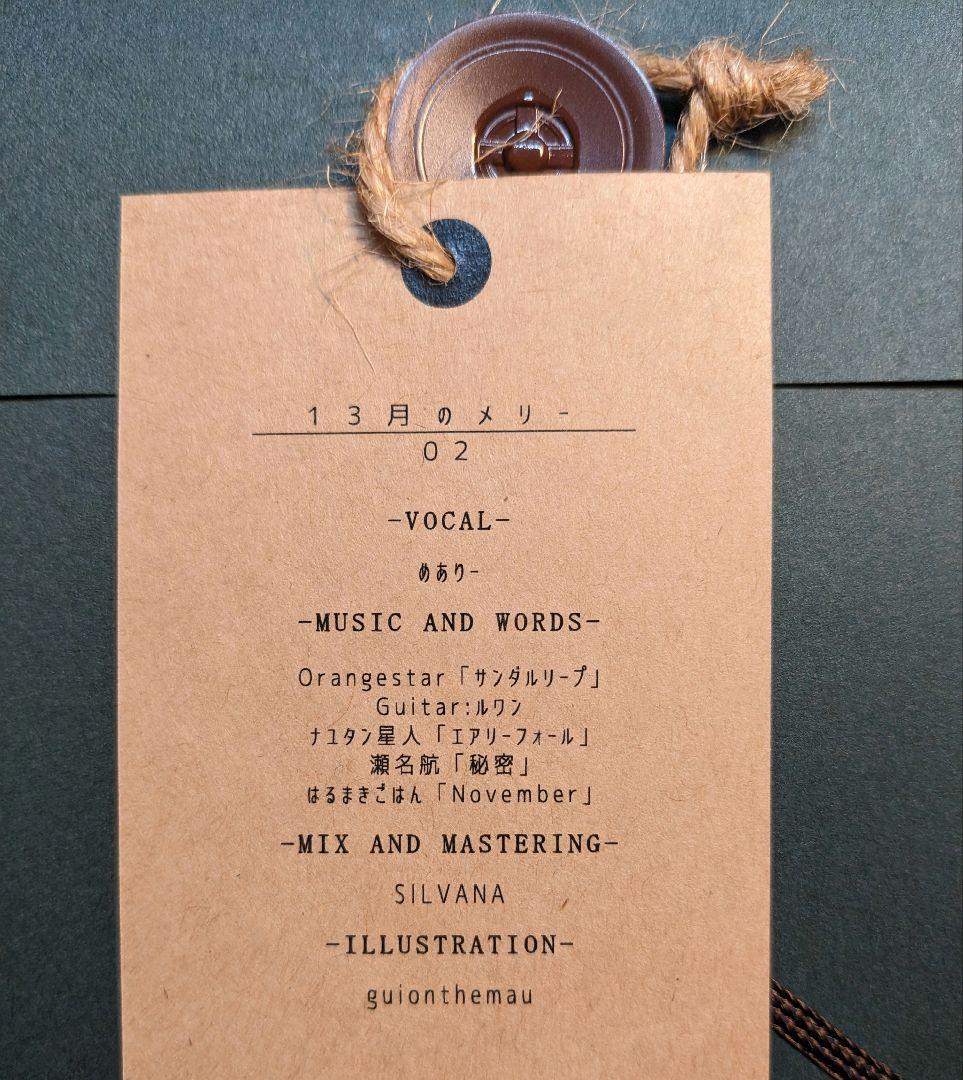 13月のメリー
02
-VOCAL-
めありー
-MUSIC AND WORDS-
Orangestar「サンダルリープ」
Guitar:ルワン
ナユタン星人「エアリーフォール」
瀬名航「秘密」
はるまきごはん「November」
-MIX AND MASTERING-
SILVANA
-ILLUSTRATION-
guionthemau